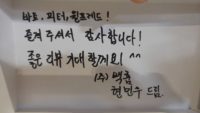 바로, 피터, 윌프레드!
즐겨 주셔서 감사합니다!
좋은 리뷰 기대 할께요! ^^
(주) 맥홈
현민수 드림.